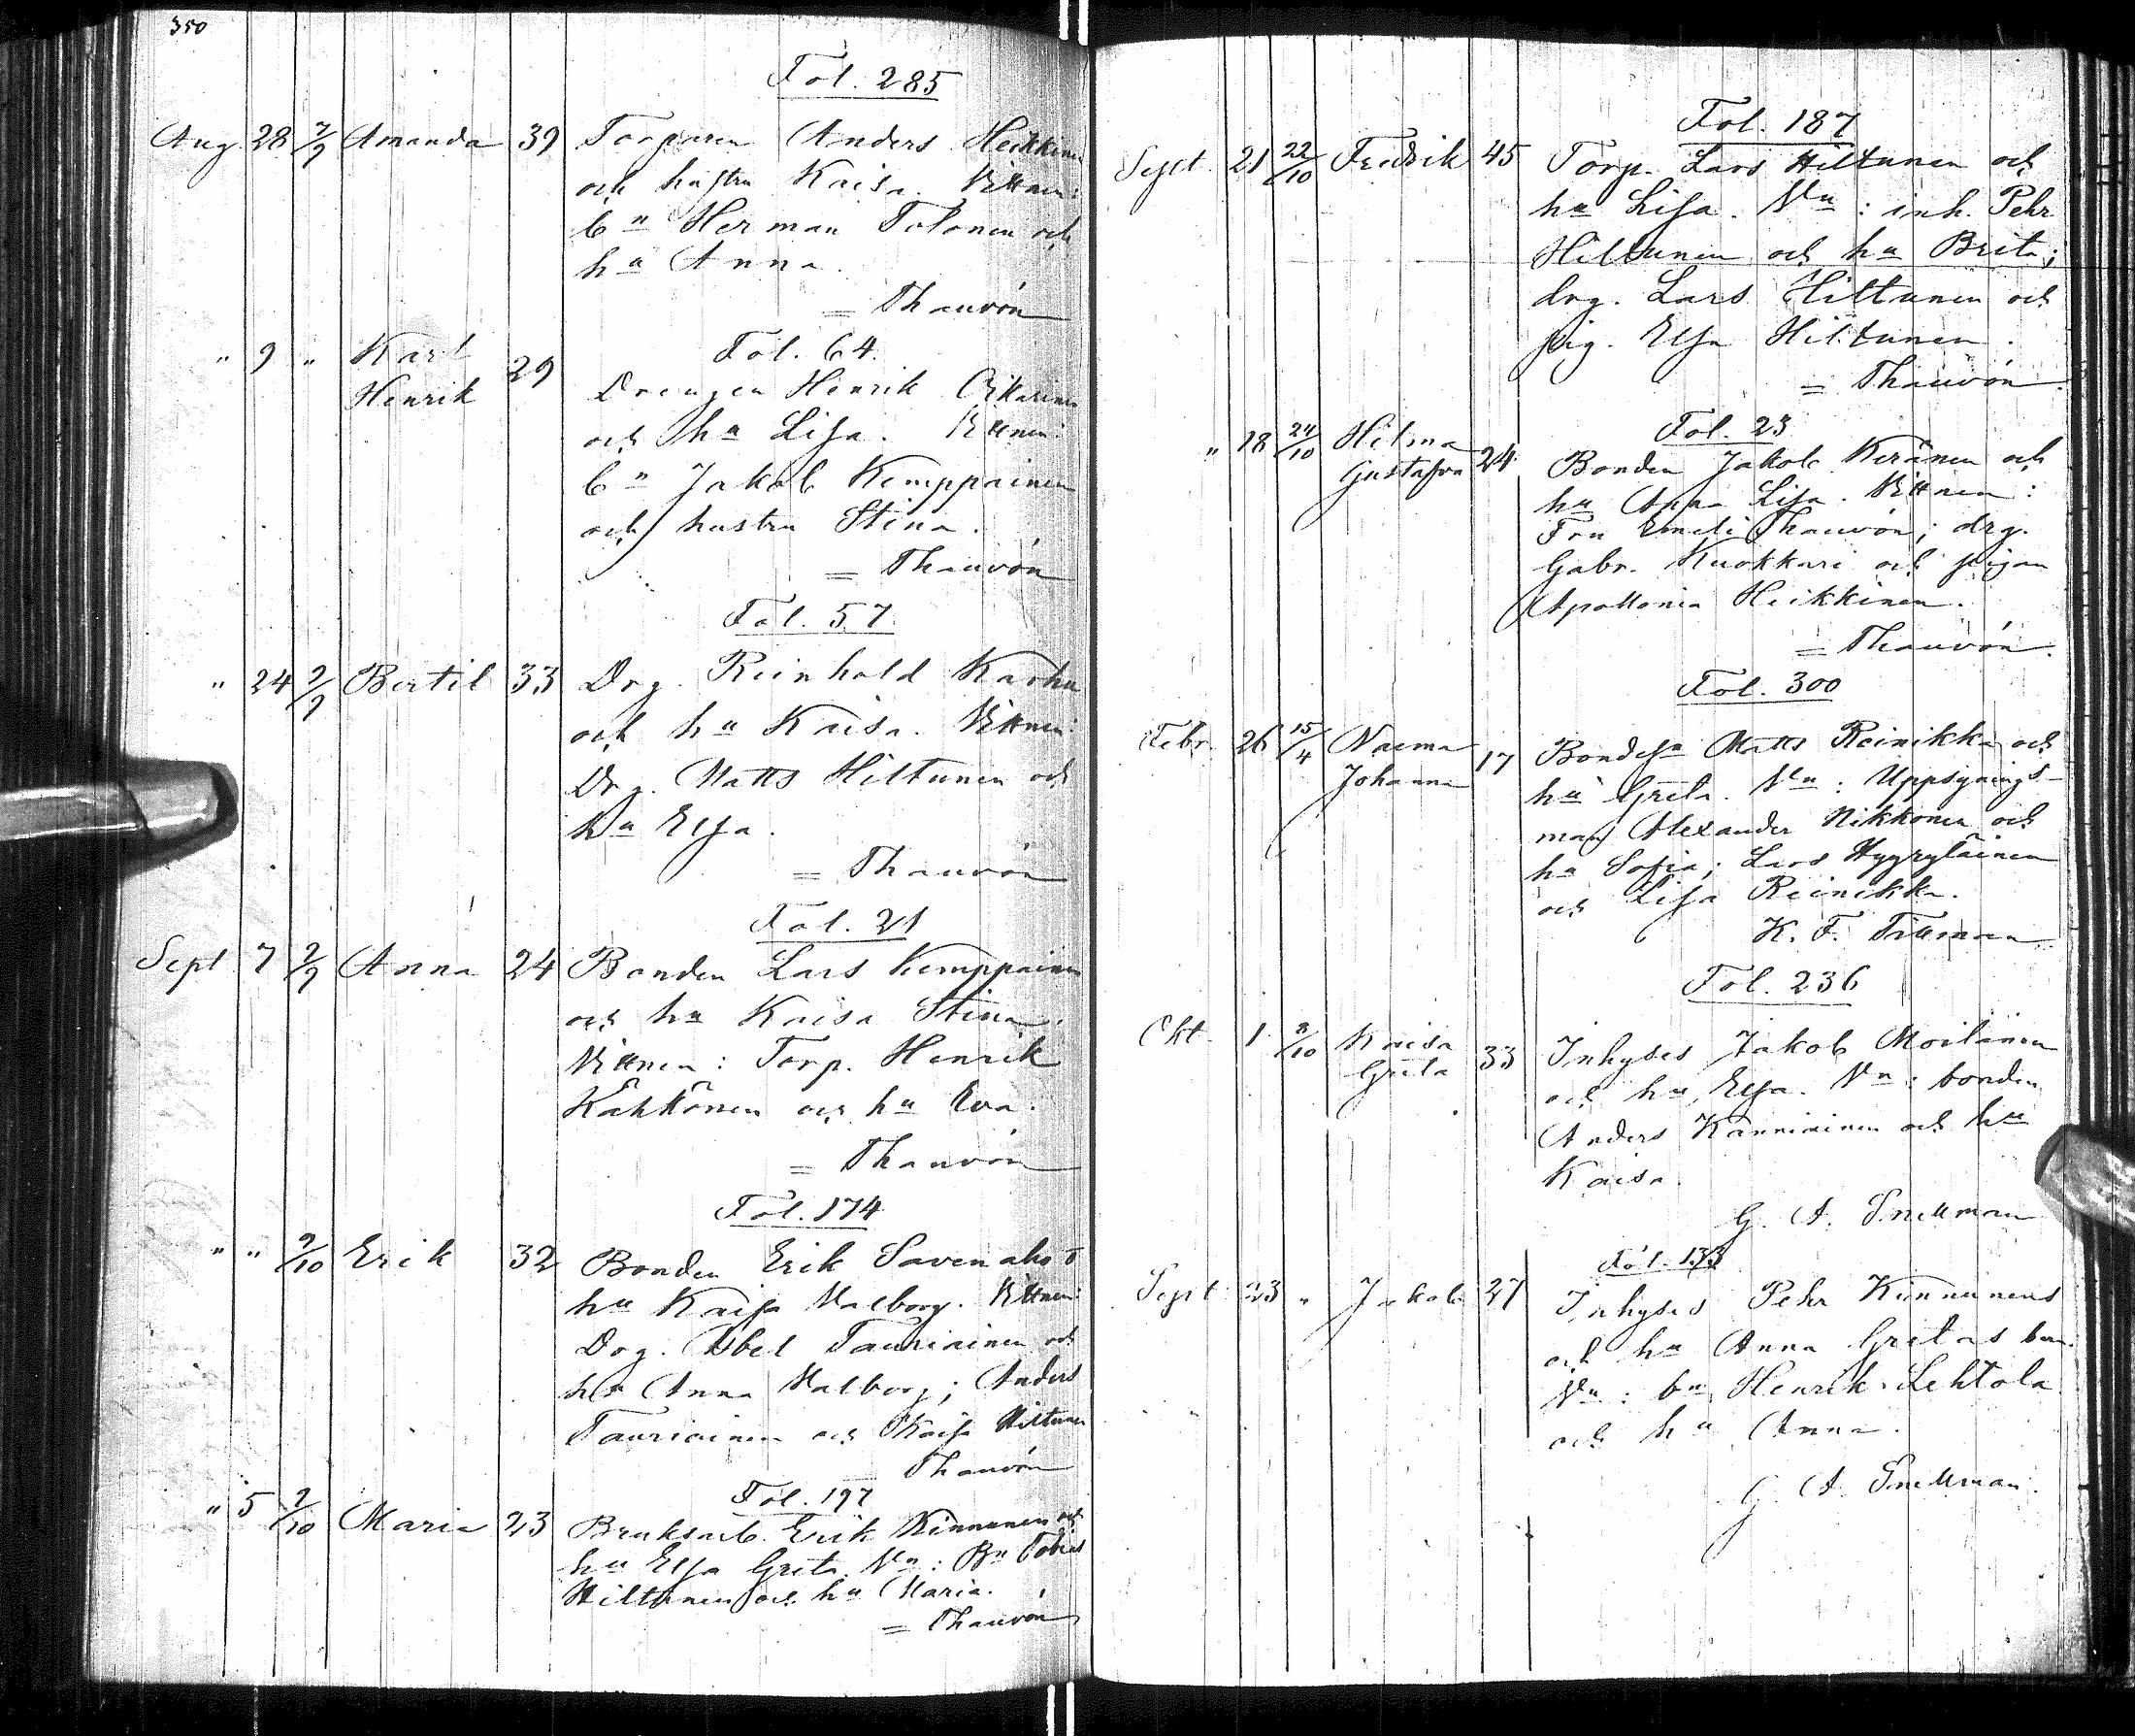 350
Fol. 285
Aug. 28 7/9 Amanda 39 Torparen Anders Heikkinen
och hustru Kaisa. Vittnen:
bn Herman Tolonen och
hu Anna.
= Thauvón
" 9 " Karl Fol. 64.
Henrik 29 Drengen Henrik Oikarinen
och hu Lisa. Vittnen:
bn Jakob Kemppainen
och hustru Stina.
= Thauvón
Fol. 57.
" 24 2/9 Bertil 33 Drg. Reinhold Karhu
och hu Kaisa. Vittnen:
Drg. Matts Hiltunen och
hu Elsa.
= Thauvón
Fol. 21
Sept. 7 2/9 Anna 24 Bonden Lars Kemppainen
och hu Kaisa Stina.
Vittnen: Torp. Henrik
Kähkönen och hu Eva.
= Thauvón
Fol. 174
" " 9/10 Erik 32 Bonden Erik Savenaho o
hu Kajsa Valborg. Vittnen:
Drg. Abel Tauriainen och
hu Anna Valborg; Anders
Tauriainen och Kajsa Hiltunen
Thauvón
Fol. 197
" 5 9/10 Maria 23 Bruksarb. Erik Kinnunen och
hu Elsa Greta. Vn: Bn Tobias
Hiltunen och hu Maria.
= Thauvón
Fol. 187
Sept. 21 22/10 Fredrik 45 Torp. Lars Hiltunen och
hu Lisa. Vn: inh. Pehr
Hiltunen och hu Brita;
drg. Lars Hiltunen och
pig. Elsa Hiltunen.
= Thauvón.
Fol. 23
" 18 24/10 Hilma
Gustafva 24 Bonden Jakob Keränen och
hu Anna Lisa. Vittnen:
Fru Emeli Thauvón; drg.
Gabr. Kuokkari och pigan
Apollonia Heikkinen.
= Thauvón.
Fol. 300
Febr. 26 15/4 Naema
Johanna 17 Bondesn Matts Reinikka och
hu Greta. Vn: Uppsynings-
man Alexander Nikkonen och
hu Sofia; Lars Hyyryläinen
och Lisa Reinikka.
K. F. Tittman
Fol. 236
Okt. 1 8/10 Kaisa
Greta 33 Inhyses Jakob Moilanen
och hu Elsa. Vn: bonden
Anders Kanniainen och hu
Kaisa.
G. A. Snellman
Fol. 133
Sept. 23 " Jakob 27 Inhyses Pehr Kinnunens
och hu Anna Gretas barn.
Vn: bn Henrik Lehtola
och hu Anna.
G. A. Snellman.